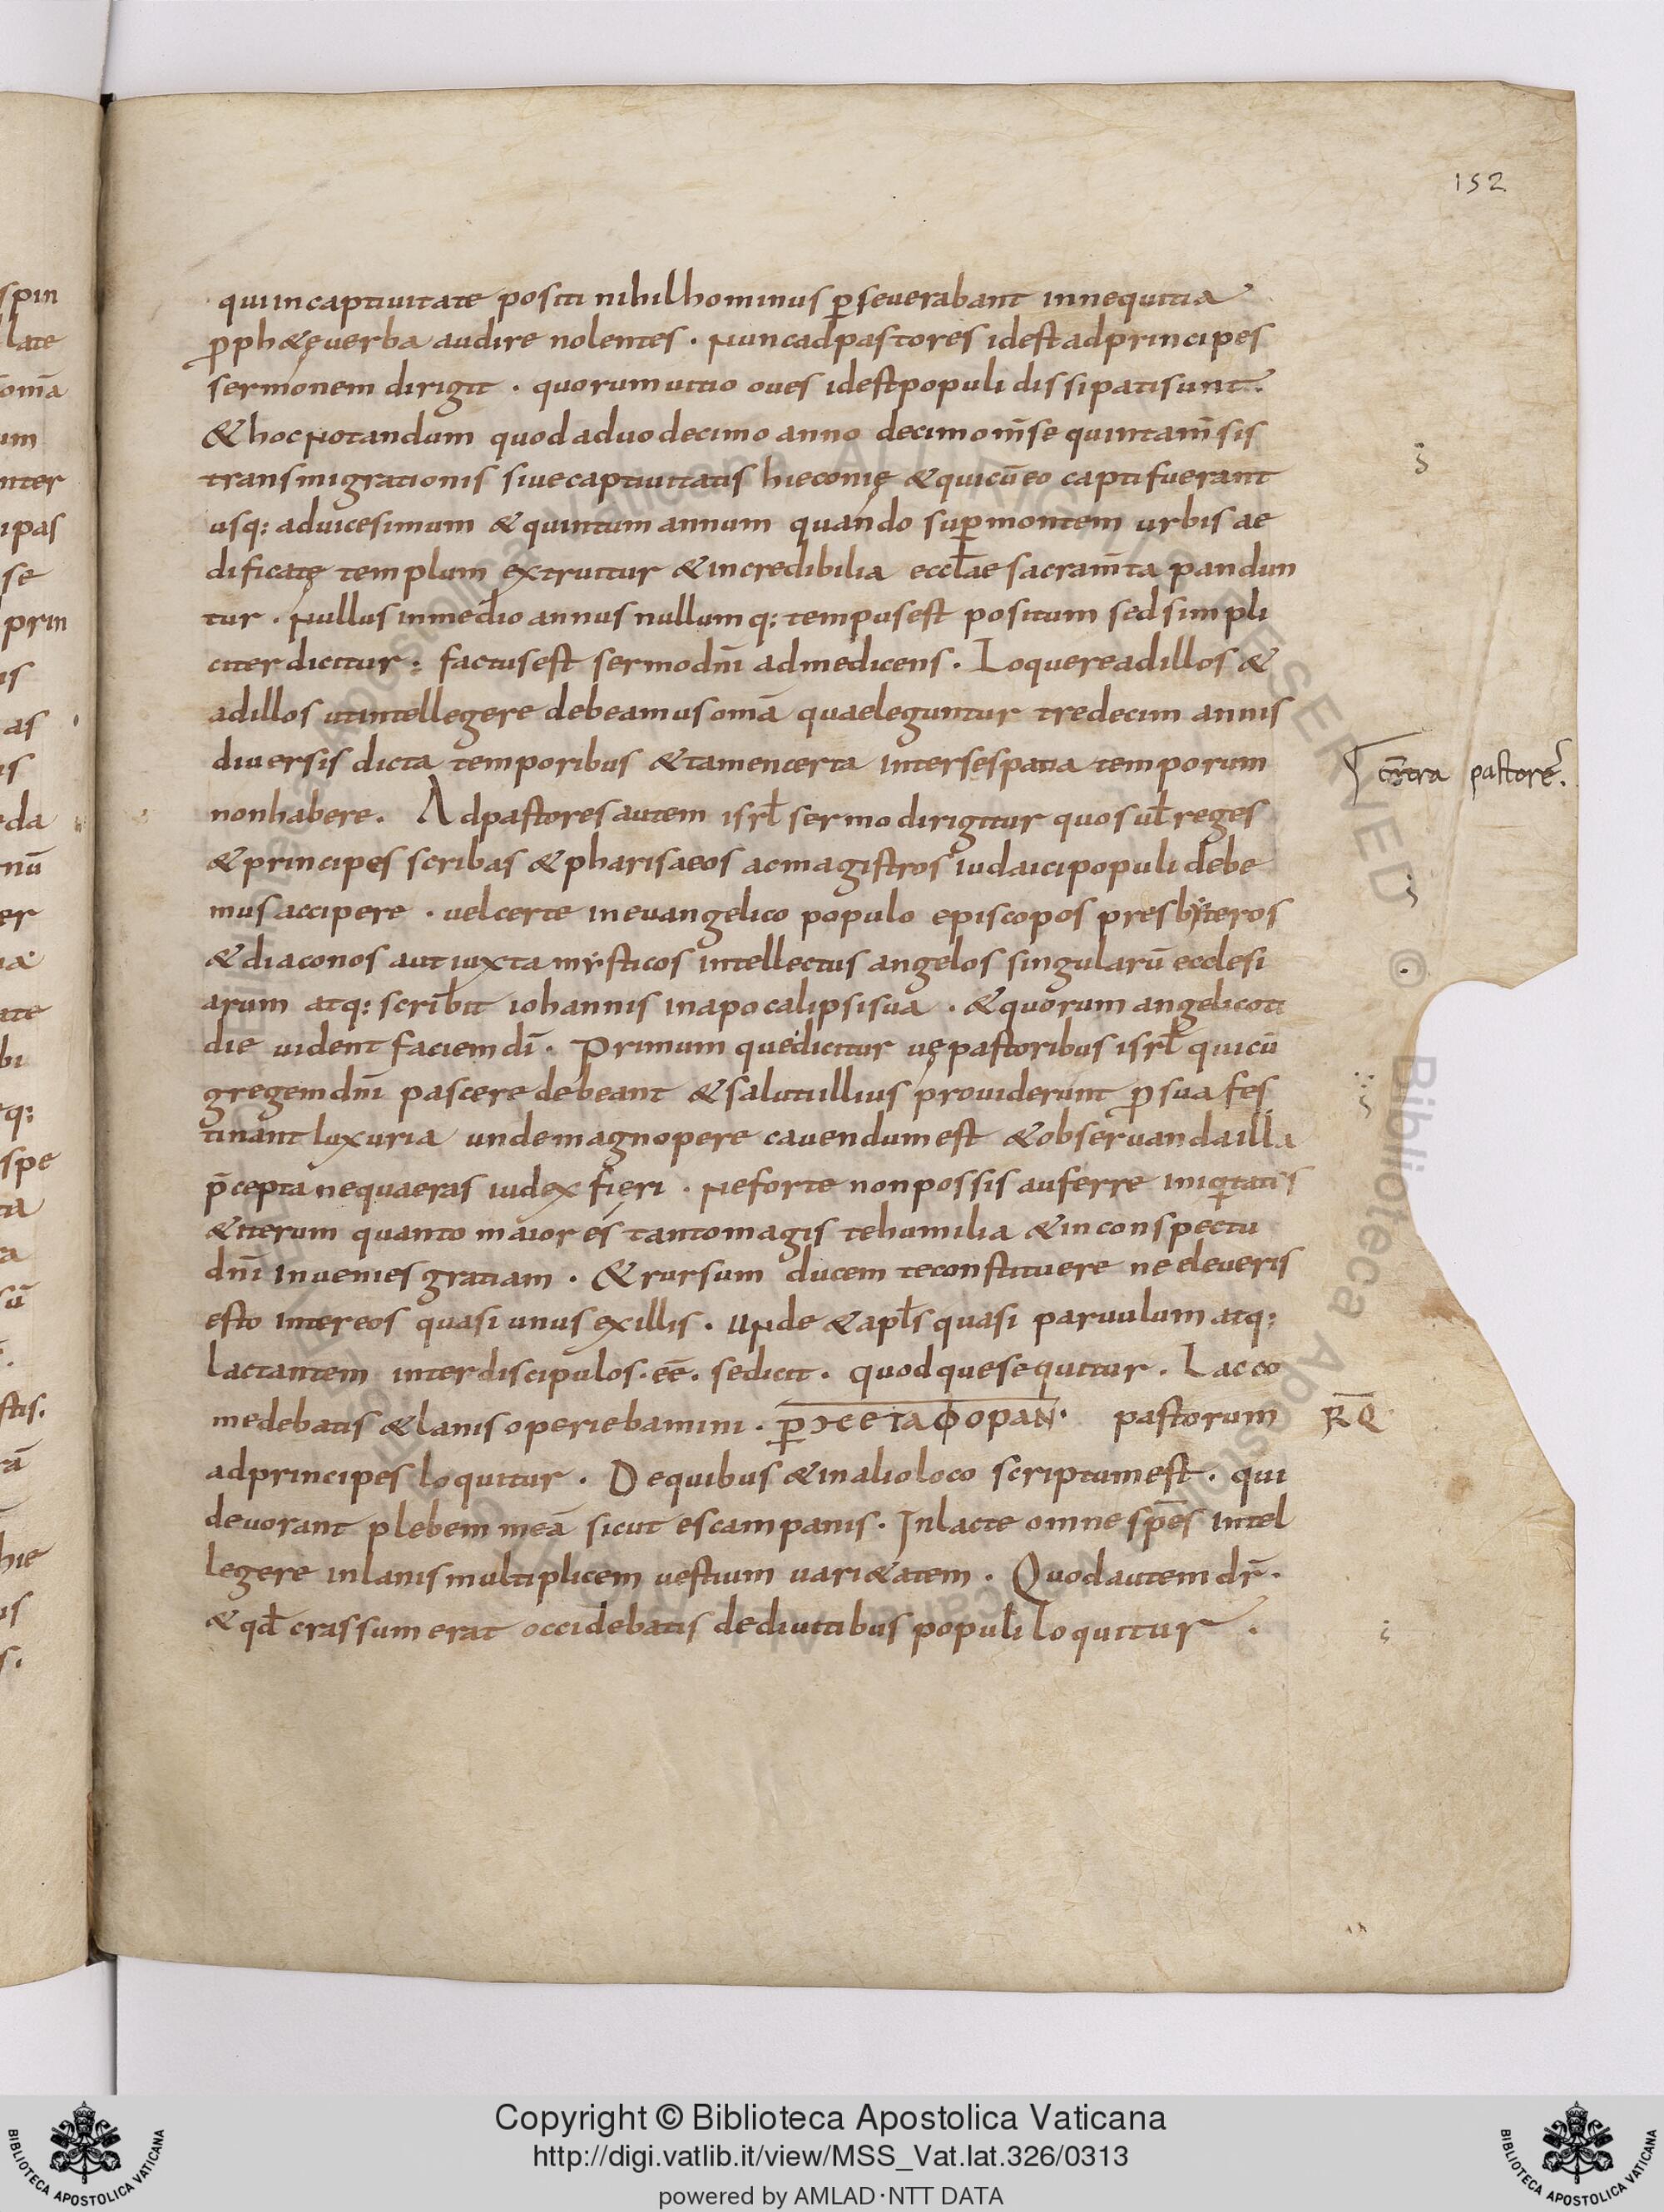 152
qui in captiuitate positi nihilhominus p̱seuerabant in nequitia
p̱ph&ę uerba audire nolentes · Nunc ad pastores id est ad principes
sermonem dirigit · quorum uitio oues id est populi dissipati sunt ·
& hoc Notandum quod a duodecimo anno decimo m̄se quinta m̄sis
transmigrationis siue captiuitatis hieconię & qui cū eo capti fuerant
usq: ad uicesimum & quintum annum quando sup̱ montem urbis ae
dificatę templum extruitur & incredibilia eccl̄ae sacram̄ta pandun
tur · Nullus in medio annus nullumq: tempus est positum sed simpli
citer dicitur : factus est sermo dn̄i ad me dicens · Loquere ad illos &
ad illos ut intellegere debeamus om̄a quae leguntur tredecim annis
diuersis dicta temporibus & tamen certa inter se spatia temporum
non habere · Ad pastores autem isrl̄ sermo dirigitur quos ul̄ reges
& principes scribas & pharisaeos ac magistros iudaici populi debe
mus accipere · uel certe in euangelico populo episcopos presbẏteros
& diaconos aut iuxta mẏsticos intellectus angelos singularū ecclesi
arum atq: scribit iohannis in apocalipsi sua · & quorum angeli coti
die uident faciem dī · Primum quę dicitur uę pastoribus isrl̄ qui cū
gregem dn̄i pascere debeant & saluti illius prouiderunt p̱ sua fes
tinant luxuria unde magnopere cauendum est & obseruanda illa
p̄cepta ne quaeras iudex fieri · Ne forte non possis auferre iniqitatis
& iterum quanto maior es tanto magis te humilia & in conspectu
dn̄i inuenies gratiam · & rursum ducem te constituere ne eleueris
esto inter eos quasi unus ex illis · UNde & apl̄s quasi paruulum atq:
lactantem inter discipulos · eē · se dicit · quod que sequitur · Lac co
medebatis & lanis operiebamini · pastorum
ad principes loquitur · De quibus & in alio loco scriptum est · qui
deuorant plebem meā sicut escam panis · In lacte omne spēs intel
legere in lanis multiplicem uestium uari&atem · Quod autem dr̄ ·
& qd̄ crassum erat occidebatis de diuitibus populi loquitur ·
pastore
R̄Q̄
Copyright © Biblioteca Apostolica Vaticana
http://digi.vatlib.it/view/MSS_Vat.lat.326/0313
powered by AMLAD·NTT DATA
BIBLIOTECA APOSTOLICA VATICANA
BIBLIOTECA APOSTOLICA VATICANA